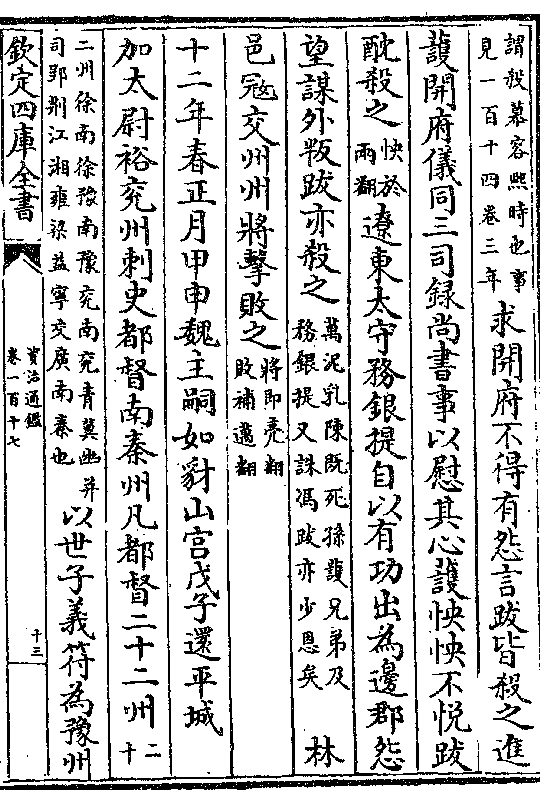 謂殺慕容熙時也事
見一百十四卷三年
求開府不得有怨言跋皆殺之進
䕶開府儀同三司録尚書事以慰其心䕶怏怏不悦跋
酖殺之
怏於
兩翻
遼東太守務銀提自以有功出為邊郡怨
望謀外叛跋亦殺之
萬泥乳陳既死孫䕶兄弟及
務銀提又誅馮跋亦少恩矣
林
邑冦交州州將擊敗之
將即亮翻
敗補邁翻
十二年春正月甲申魏主嗣如豺山宫戊子還平城
加太尉裕兖州刺史都督南秦州凡都督二十二州
二
十
二州徐南徐豫南豫兖南兖青冀幽并
司郢荆江湘雍梁益寧交廣南秦也
以世子義符為豫州
欽定四庫全書
資治通鑑
卷一百十七
十三